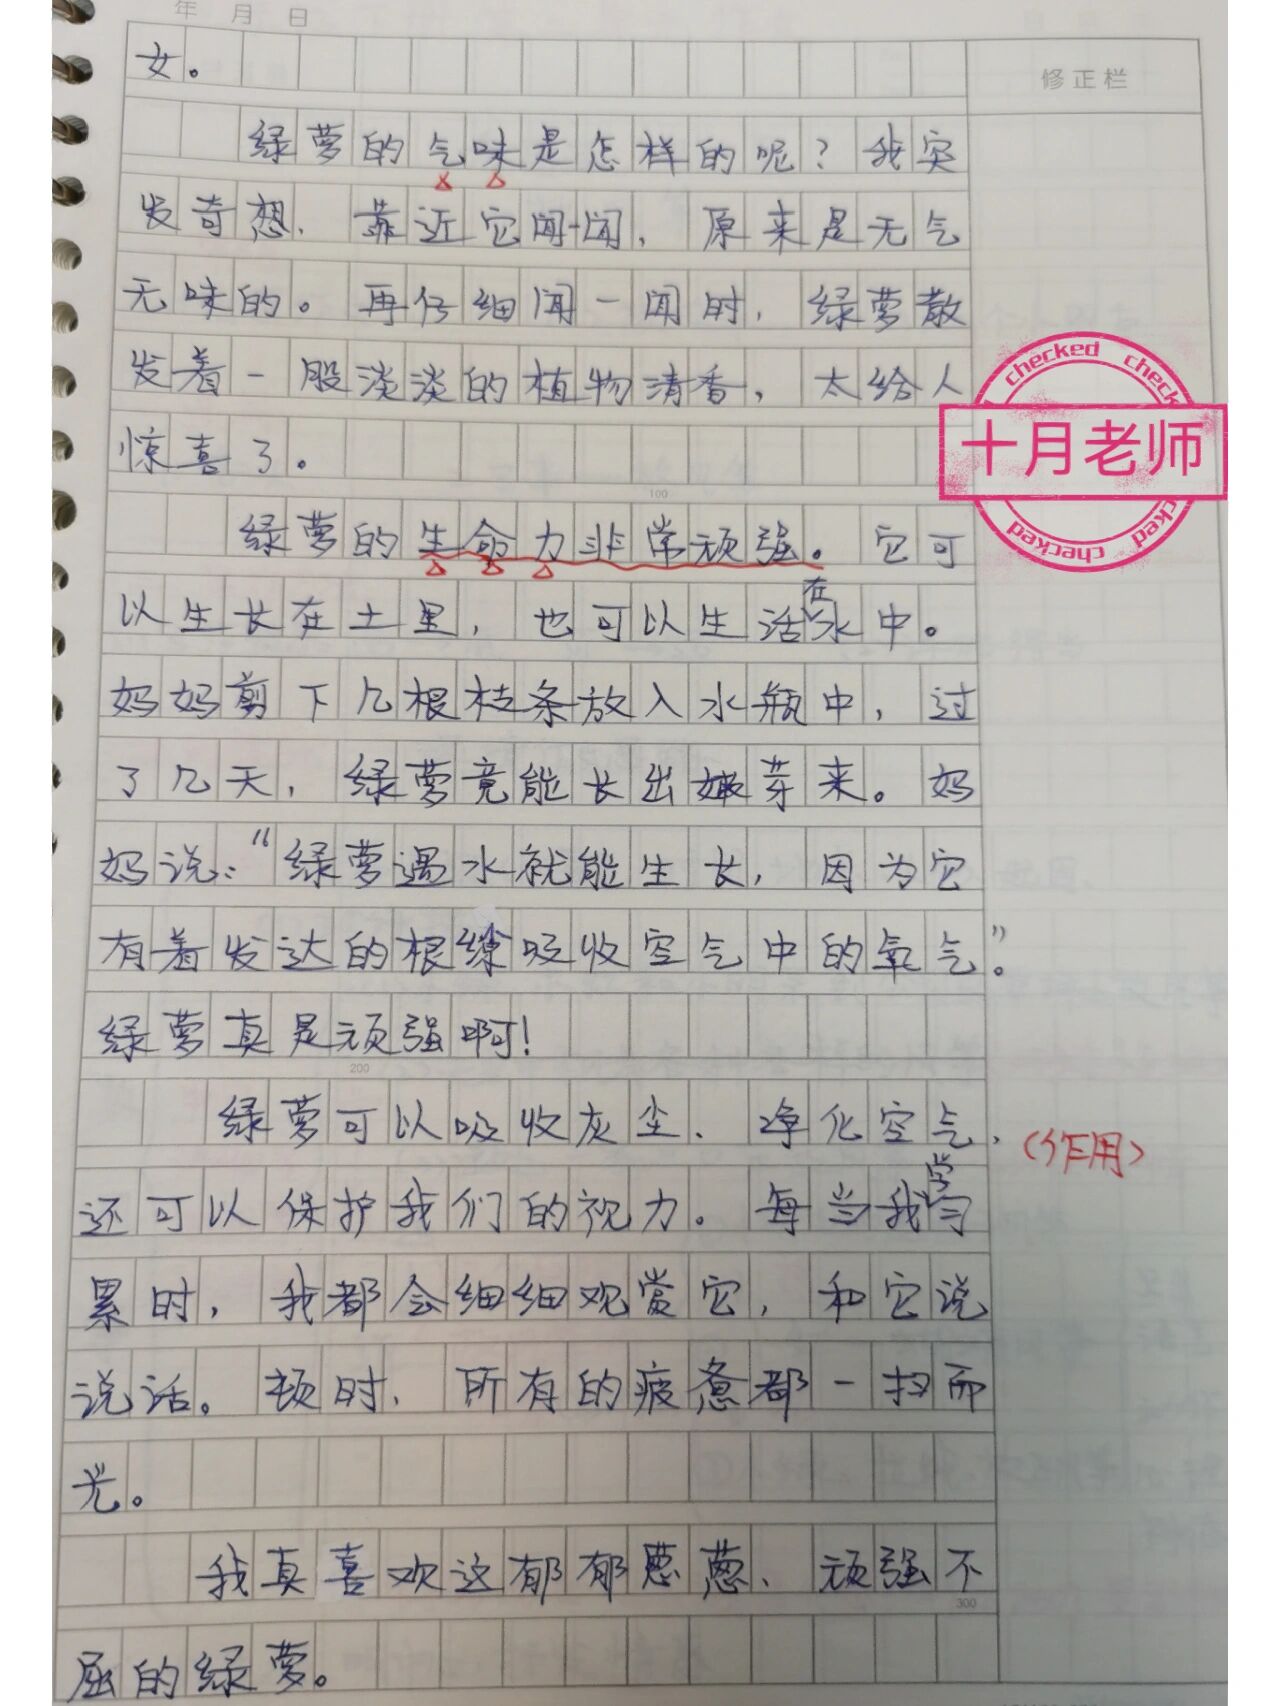 年 月 日
修正栏
女。
绿萝的气味是怎样的呢？我突
发奇想，靠近它闻一闻，原来是无气
无味的。再仔细闻一闻时，绿萝散
发着一股淡淡的植物清香，太给人
惊喜了。
checked checked
十月老师
checked
100
绿萝的生命力非常顽强。它可
以生长在土里，也可以生活在水中。
妈妈剪下几根枝条放入水瓶中，过
了几天，绿萝竟能长出嫩芽来。妈
妈说：“绿萝遇水就能生长，因为它
有着发达的根吸收空气中的氧气。”
绿萝真是顽强啊！
200
绿萝可以吸收灰尘、净化空气，
（作用）
还可以保护我们的视力。每当我学习
累时，我都会细细观赏它，和它说
说话。顿时，所有的疲惫都一扫而
光。
我真喜欢这郁郁葱葱、顽强不
300
屈的绿萝。